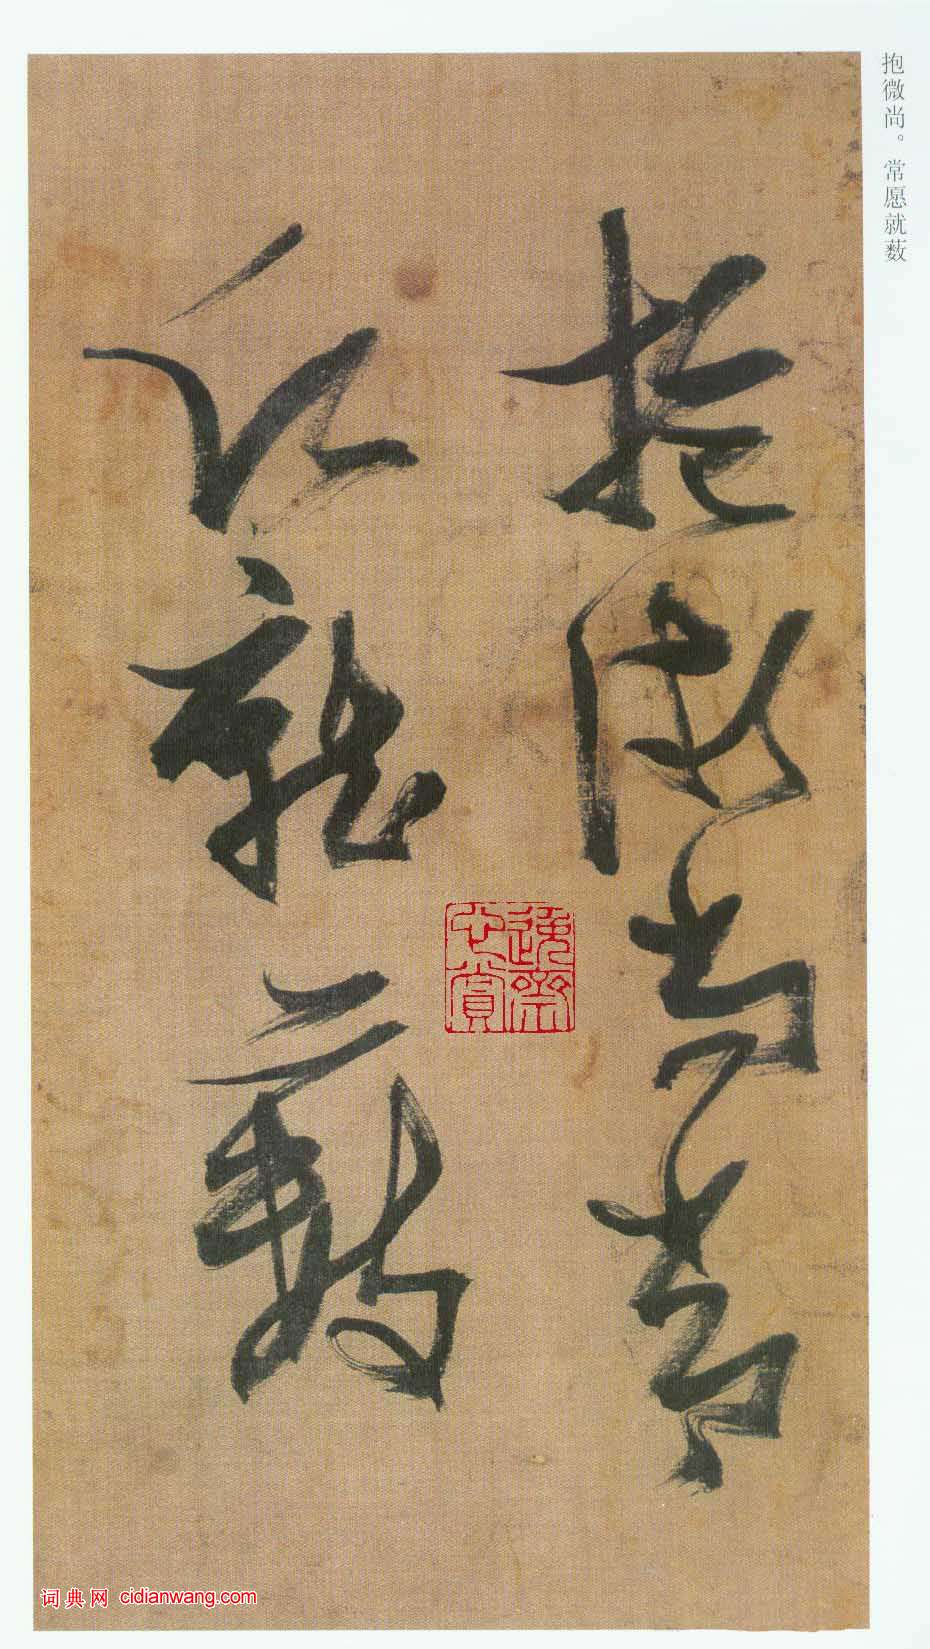 抱微尚。常愿就薮
抱微尚常
願就藪
词典网 cidianwang.com